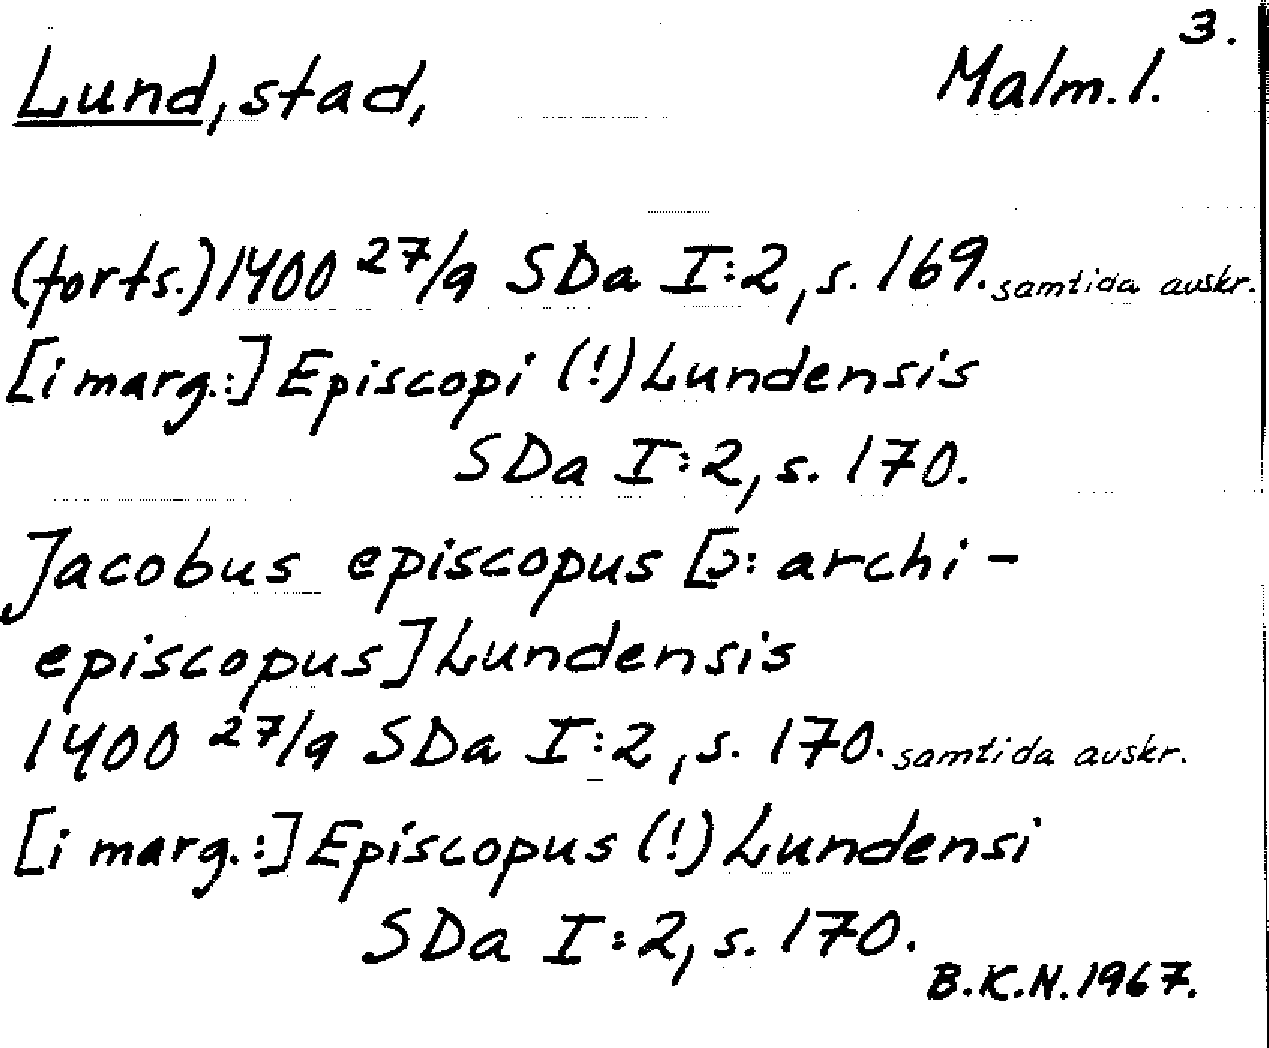 3.
Lund, stad, Malm. l.
(forts.) 1400 27/9 SDa I:2, s. 169. samtida avskr.
[i marg.:] Episcopi (!) Lundensis
SDa I:2, s. 170.
Jacobus episcopus [ɔ: archi-
episcopus] Lundensis
1400 27/9 SDa I:2, s. 170. samtida avskr.
[i marg.:] Episcopus (!) Lundensi
SDa I:2, s. 170.
B.K.N. 1967.